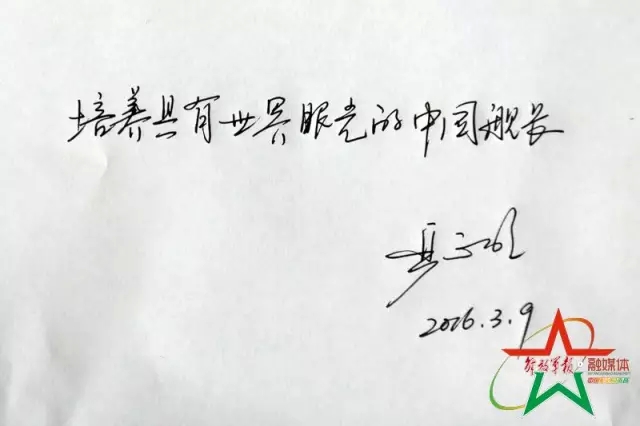 培养具有世界眼光的中国舰长
2016.3.9
解放军报
融媒体